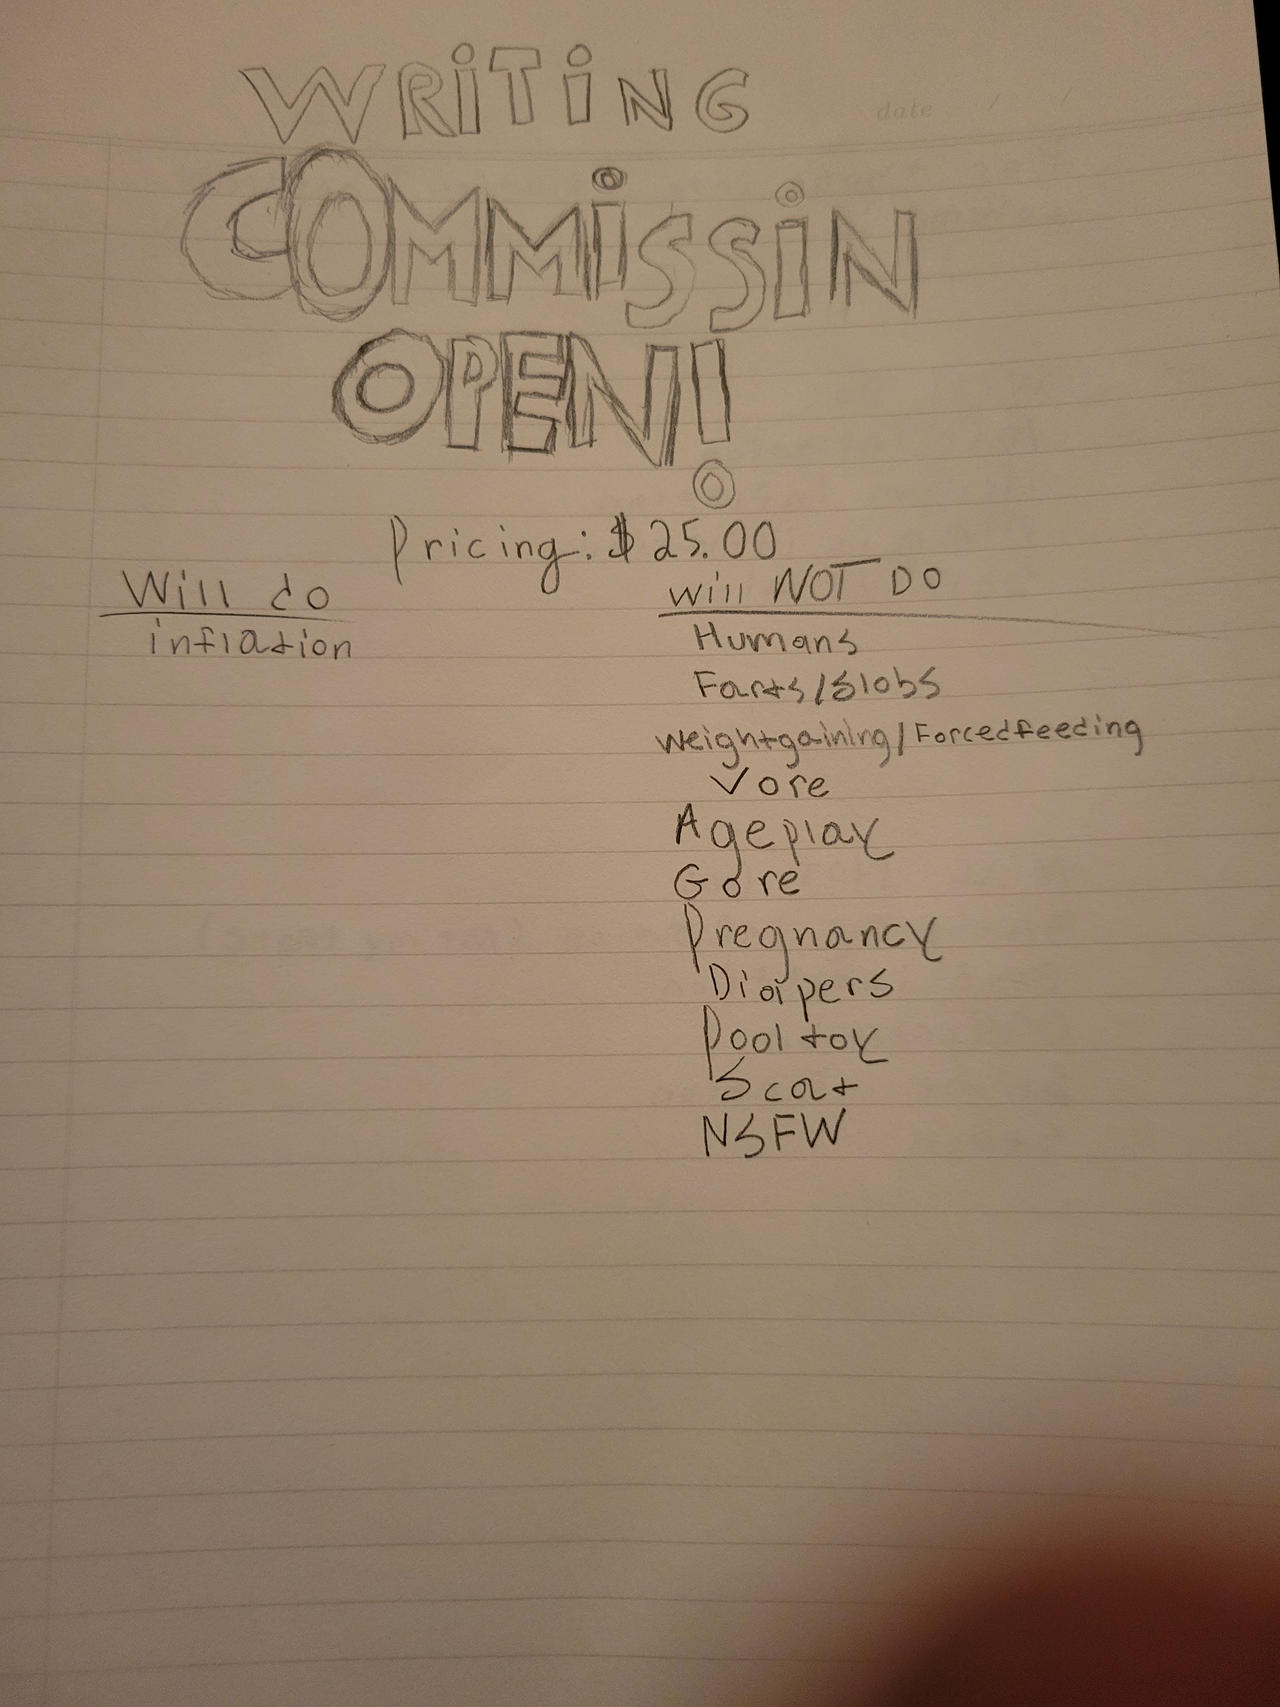 date / /
WRiTiNG
COMMiSSiN
OPEN!
Pricing: $25.00
Will do
inflation
will NOT DO
Humans
Farts/Slobs
Weightgaining/Forcedfeeding
Vore
Ageplay
Gore
Pregnancy
Diapers
Pool toy
Scat
NSFW